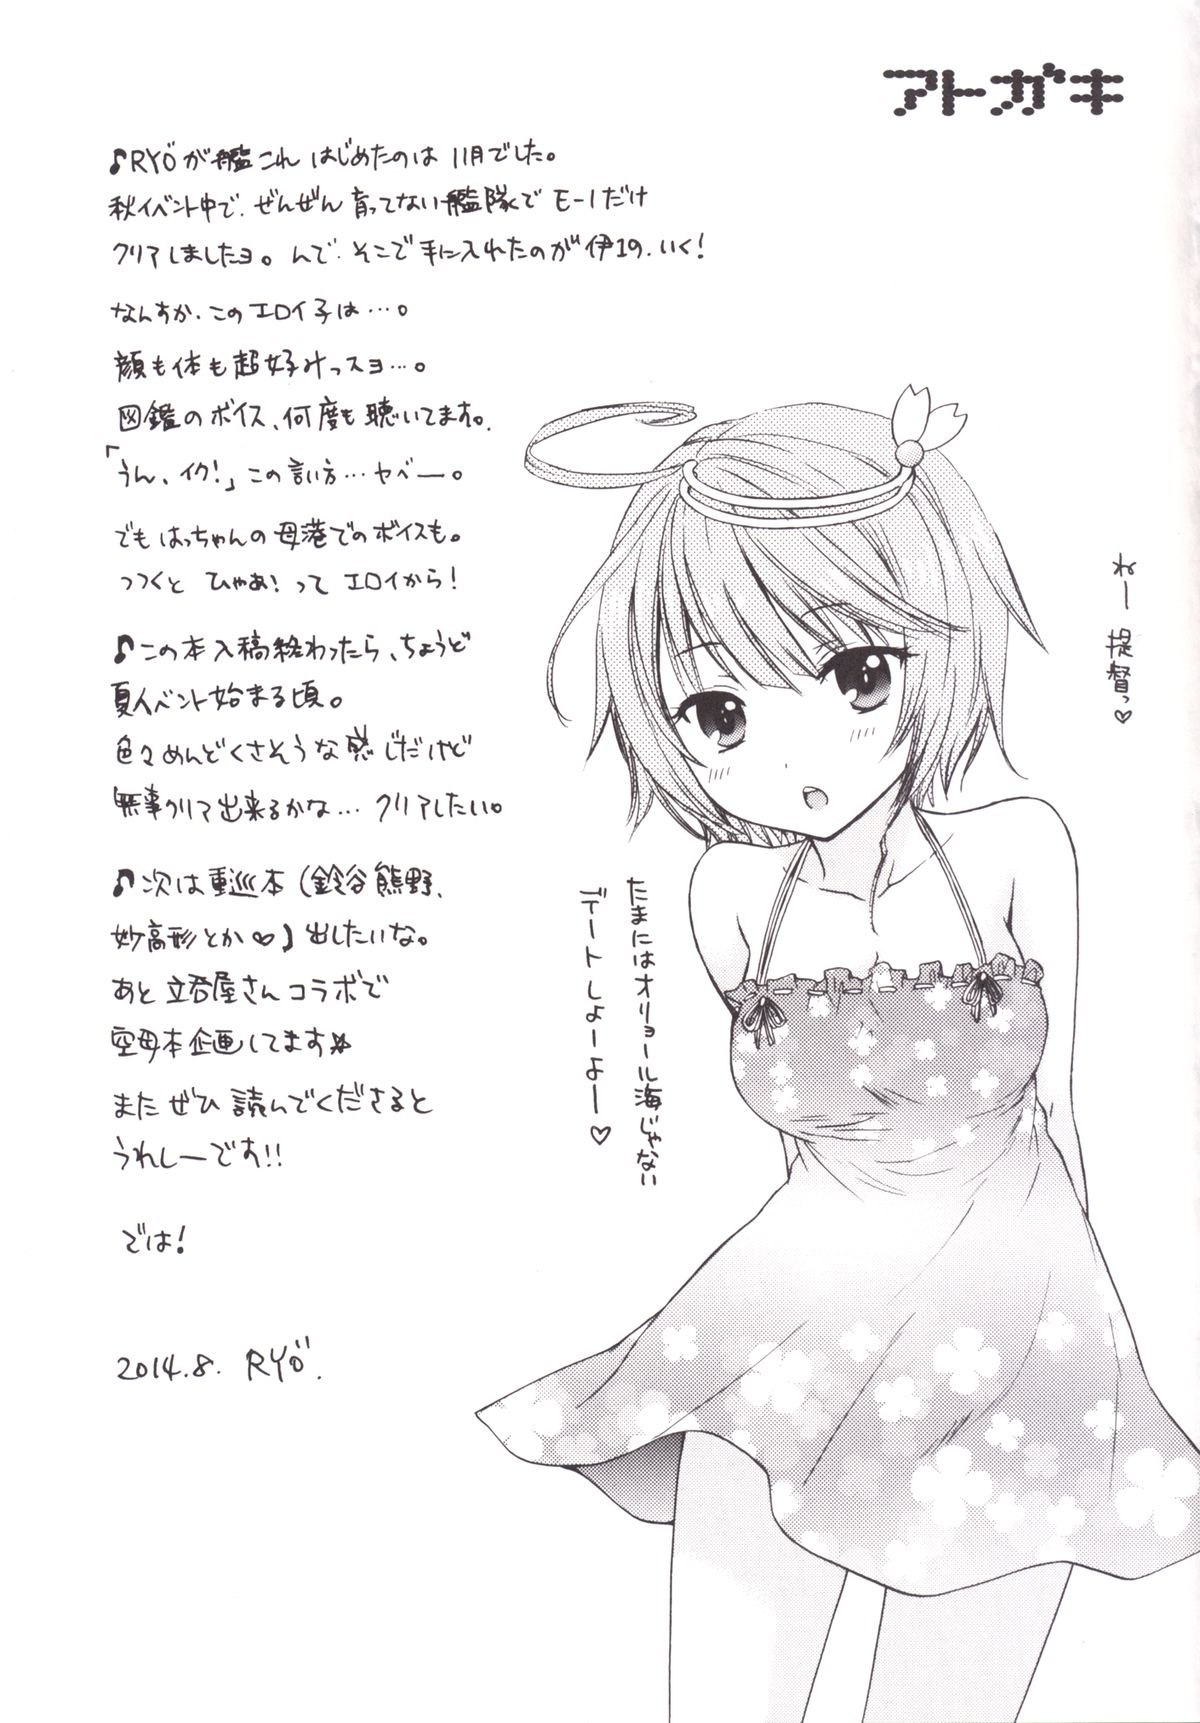 アトガキ
♪RYÖが艦これ はじめたのは 11月でした。
秋イベント中で、ぜんぜん育ってない艦隊でE-1だけ
クリアしましたヨ。んで、そこで手に入れたのが伊19、いく!
なんすか、このエロイ子は…。
顔も体も超好みっスヨ…。
図鑑のボイス、何度も聴いてます。
「うん、イク!」この言い方…ヤベー。
でもはっちゃんの母港でのボイスも。
つつくと ひゃあ!って エロイから!
♪この本入稿終わったら、ちょうど
夏イベント始まる頃。
色々めんどくさそうな感じだけど
無事クリア出来るかな… クリアしたい。
♪次は重巡本(鈴谷熊野、
妙高形とか♡)出したいな。
あと立呑屋さんコラボで
空母本企画してます☆
またぜひ読んでくださると
うれしーです!!
では!
2014.8. RYÖ.
ねー 提督っ♡
たまにはオリョール海じゃない
デートしよーよー♡